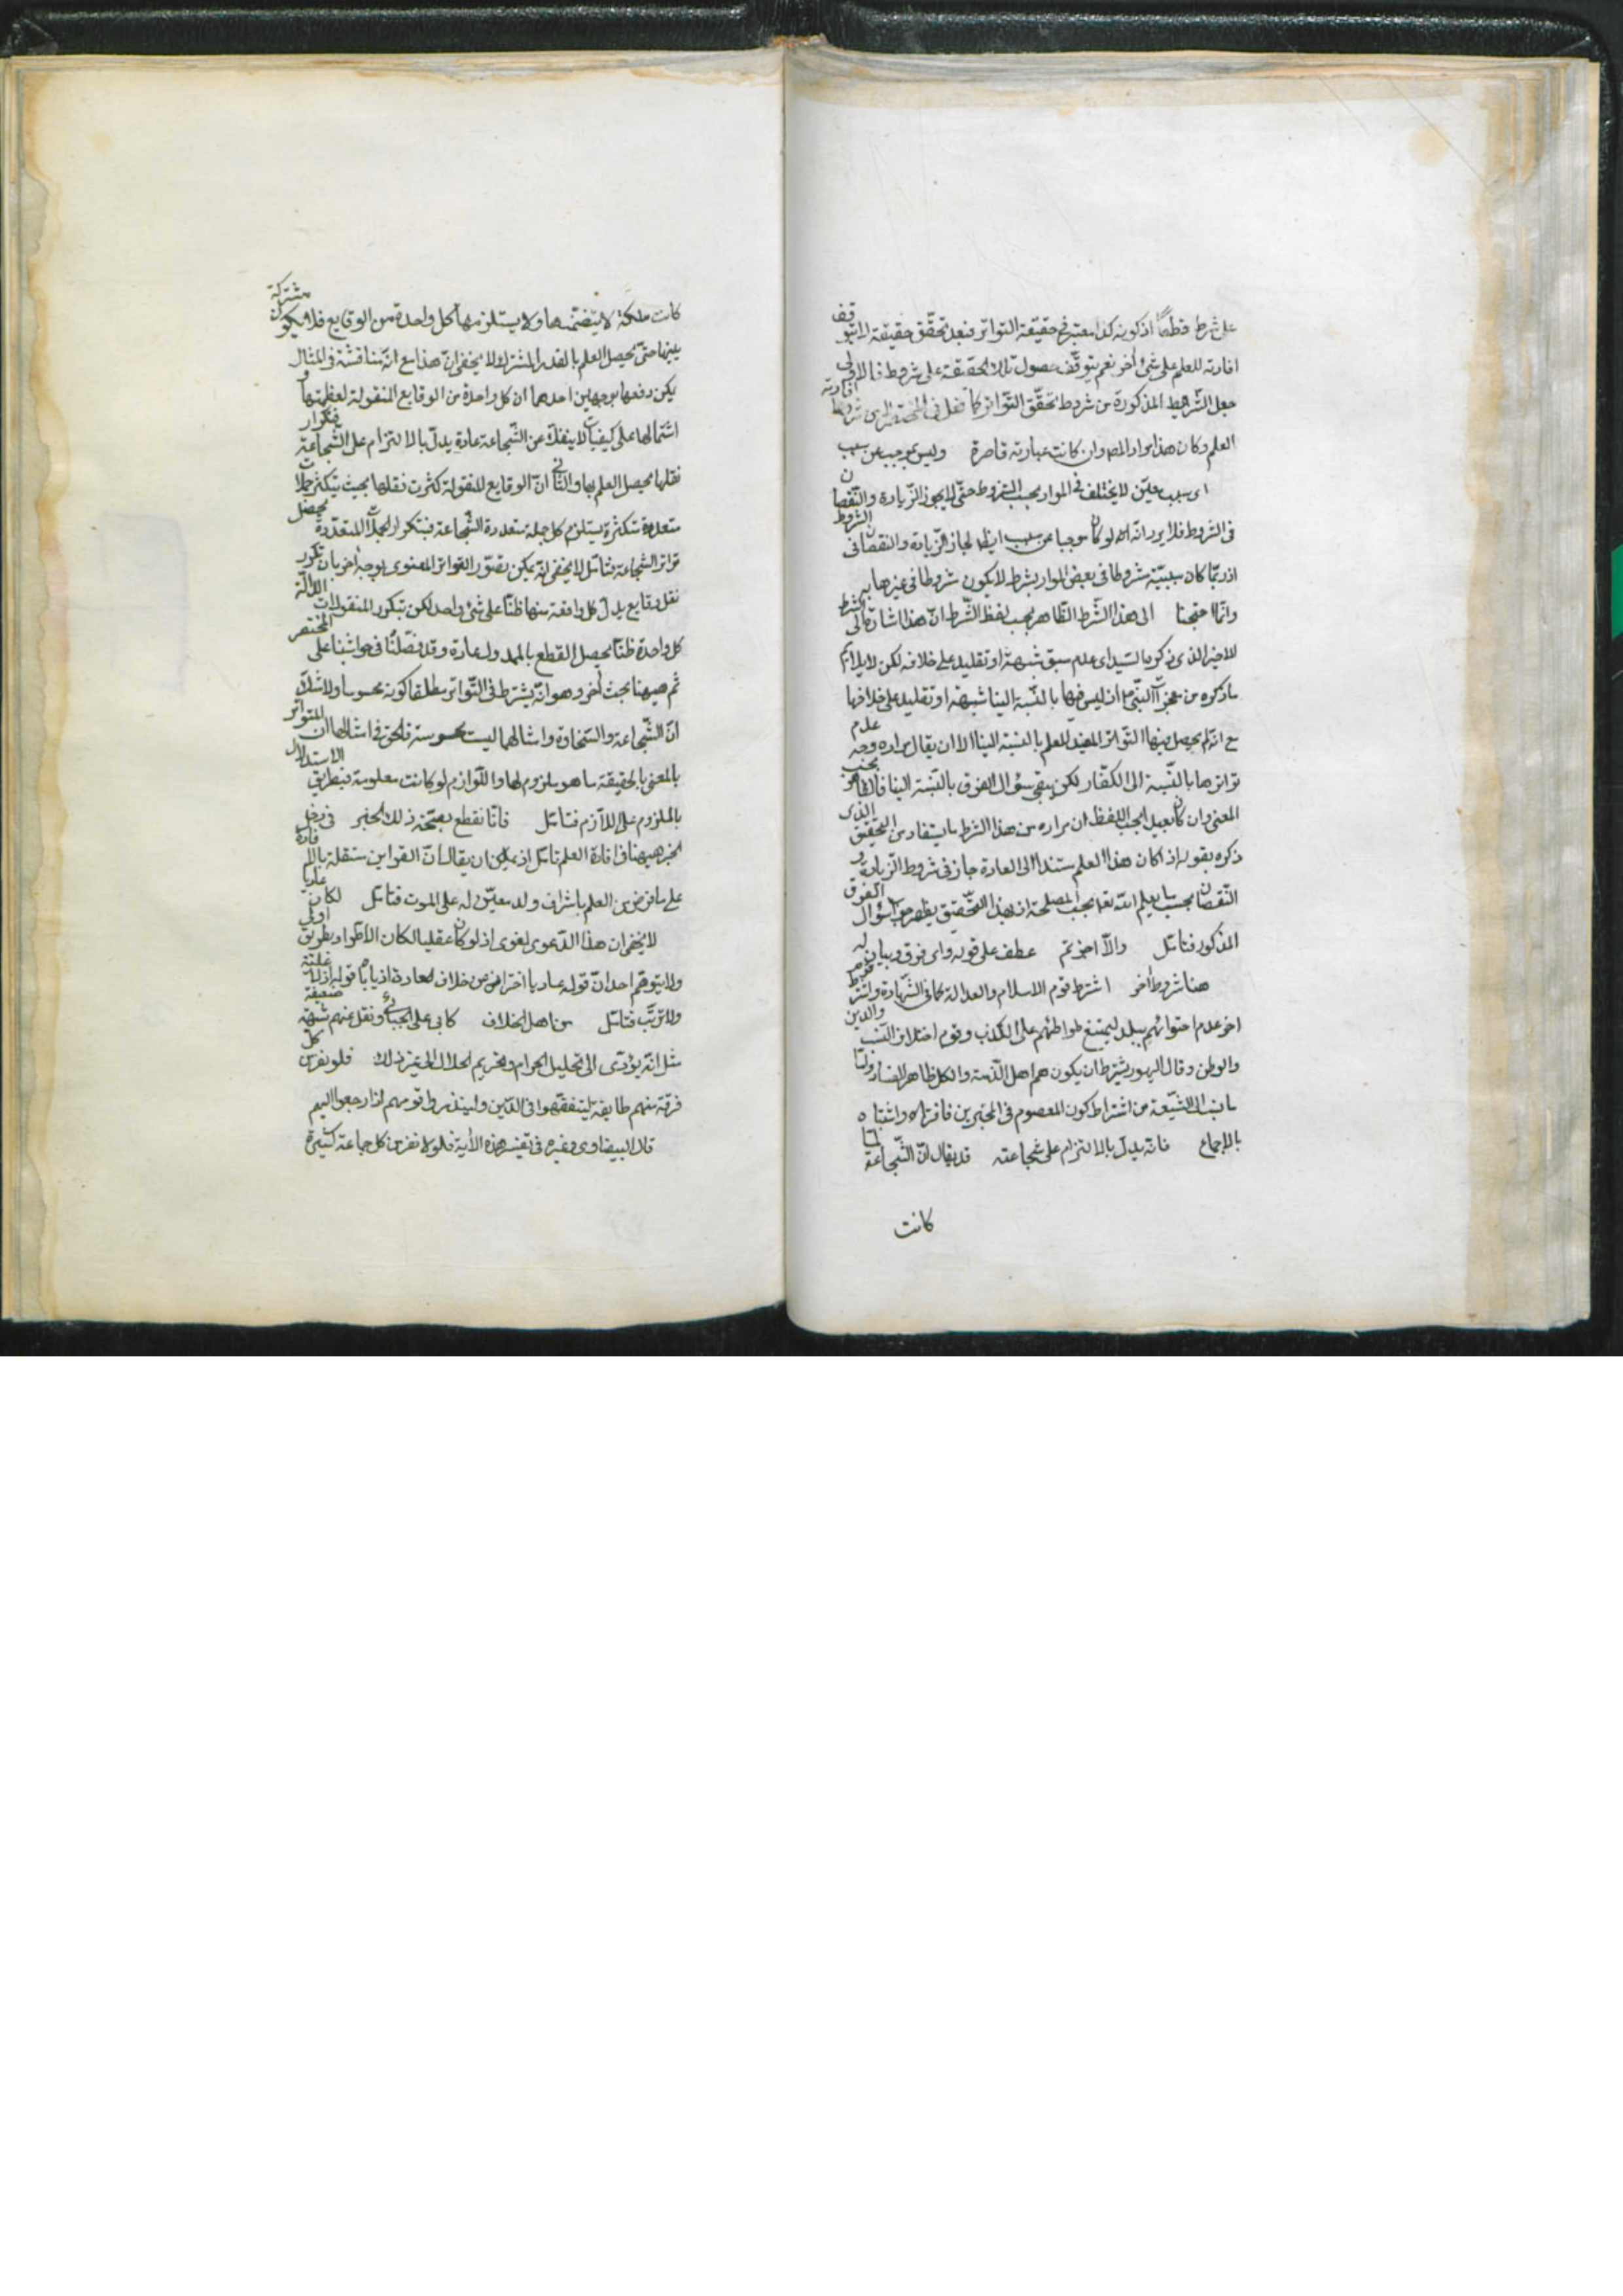 على شرط قطعاً اذ كونه كذا معتبر في حقيقة التواتر فبعد تحقّق حقيقة لا يتوقف
افادته للعلم على شئ آخر نعم يتوقّف حصول تلك الحقيقة على شروط فالاولى
جعل الشرايط المذكورة من شروط تحقّق التّواتر كما فعل في المختصر لا من شروط افادته
العلم وكان هذا مراد المصو ان كانت عبارته قاصرة وليس بموجب عن سبب
اى سبب معيّن لا يختلف في الموارد بحسب الشروط حتّى لا يجوز الزّيادة والنّقصان
في الشروط فلا يرد انّه لو كان موجبا عن سبب ايضا لجاز الزّيادة والنقصان في الشروط
اذ ربّما كان سببيّته مشروطا في بعض الموارد بشرط لا يكون مشروطا في غيرها به
وانّما احتجنا الى هذا الشّرط الظّاهر بحسب لفظ الشّرط انّ هذا اشارة الى الشرط
الاخير الذى ذكره السّيد اى عدم سبق شبهة او تقليد على خلافه لكن لا يلايم
ما ذكره من معجزات النّبى ص اذ ليس فيها بالنّسبة الينا شبهة او تقليد على خلافها
مع انّه لم يحصل فيها التّواتر المفيد للعلم بالنسبة الينا الا ان يقال مراده وجه عدم
تواترها بالنّسبة الى الكفّار لكن يبقى سؤال الفرق بالنّسبة الينا فالظاهر بحسب
المعنى وان كان بعيدا بحسب اللفظ ان مراده من هذا الشرط ما يستفاد من التّحقيق الذى
ذكره بقوله اذا كان هذا العلم مستنداً الى العادة جاز في شروط الزّيادة و
النّقصان بحسب ما يعلم الله تعالى بحسب المصلحة اذ بهذا التّحقيق يظهر جواب سؤال الفرق
المذكور فتامّل والّا احزتم عطف على قوله واى فرق وبيان له
هنا شروط اخر اشترط قوم الاسلام والعدالة كما في الشّهادة واشترط قوم
اخر عدم احتوائهم ببلد ليمتنع تواطئهم على الكذب وقوم اختلاف النّسب والدين
والوطن وقال اليهود يشترط ان يكون هم اهل الذّمة والكل ظاهر الفساد وامّا
ما نسب الى الشّيعة من اشتراط كون المعصوم في المخبرين فافتراء واشتباه
بالاجماع فانّه يدلّ بالالتزام على شجاعته قد يقال انّ الشّجاعة لمّا
كانت
كانت ملكة لا يتضمّنها ولا يستلزمها كل واحدة من الوقايع فلا يكون مشتركة
بينها حتّى يحصل العلم بالقدر المشترك ولا يخفى انّ هذا مع انّه مناقشة في المثال
يمكن دفعها بوجهين احدهما ان كل واحدة من الوقايع المنقولة لعظمتها و
اشتمالها على كيفيات لا ينفك عن الشّجاعة عادة يدلّ بالالتزام على الشّجاعة فبتكرار
نقلها يحصل العلم بها والثّانى انّ الوقايع المنقولة كثرت نقلها بحيث يتكثر جملات
متعددة متكثرة يستلزم كل جملة متعددة الشّجاعة فبتكرار الجملات المتعدّدة يحصل
تواتر الشجاعة فتامّل لا يخفى انّه يمكن تصوّر التّواتر المعنوى بوجه آخر بان تكرر
نقل وقايع يدلّ كل واقعة منها ظنّا على شئ واحد لكن بتكرر المنقولات الدالّة
كل واحدة ظنّا يحصل القطع بالمدلول عادة وقد فصّلنا في حواشينا على المختصر
ثم هيهنا بحث آخر وهو انّه يشترط في التّواتر مطلقا كونه محسوسا ولا شك
انّ الشّجاعة والسّخاوة وامثالهما ليست محسوسة فالحق في امثالها ان المتواتر
بالمعنى بالحقيقة ما هو ملزوم لها واللّوازم لو كانت معلومة فبطريق الاستدلال
بالملزوم على اللّازم فتامّل فانّا نقطع بصحّة ذلك الخبر في دخل
الخبر هيهنا في افادة العلم تامّل اذ يمكن ان يقال انّ القراين مستقلة بافادة
على ما فرض من العلم باشراف ولد معيّن له على الموت فتامّل لكان عاديا
لا يخفى ان هذا الدّعوى لغوى اذ لو كان عقليا لكان الاطّراد بطريق اولى
ولا يتوهّم احد انّ قوله عاديا احتراض من خلاف العادة اذ ياباه قوله اذ لا علّية
ولا ترتّب فتامّل من اهل الخلاف كابى على الجبائى ونقل عنهم شبهة ضعيفة
مثل انّه يؤدّى الى تحليل الحرام وتحريم الحلال الى غير ذلك فلو نفر من كلّ
فرقة منهم طايفة ليتفقّهوا في الدّين ولينذروا قومهم اذا رجعوا اليهم
قال البيضاوى وغيره في تفسير هذه الآية فلولا نفر من كل جماعة كثيرة